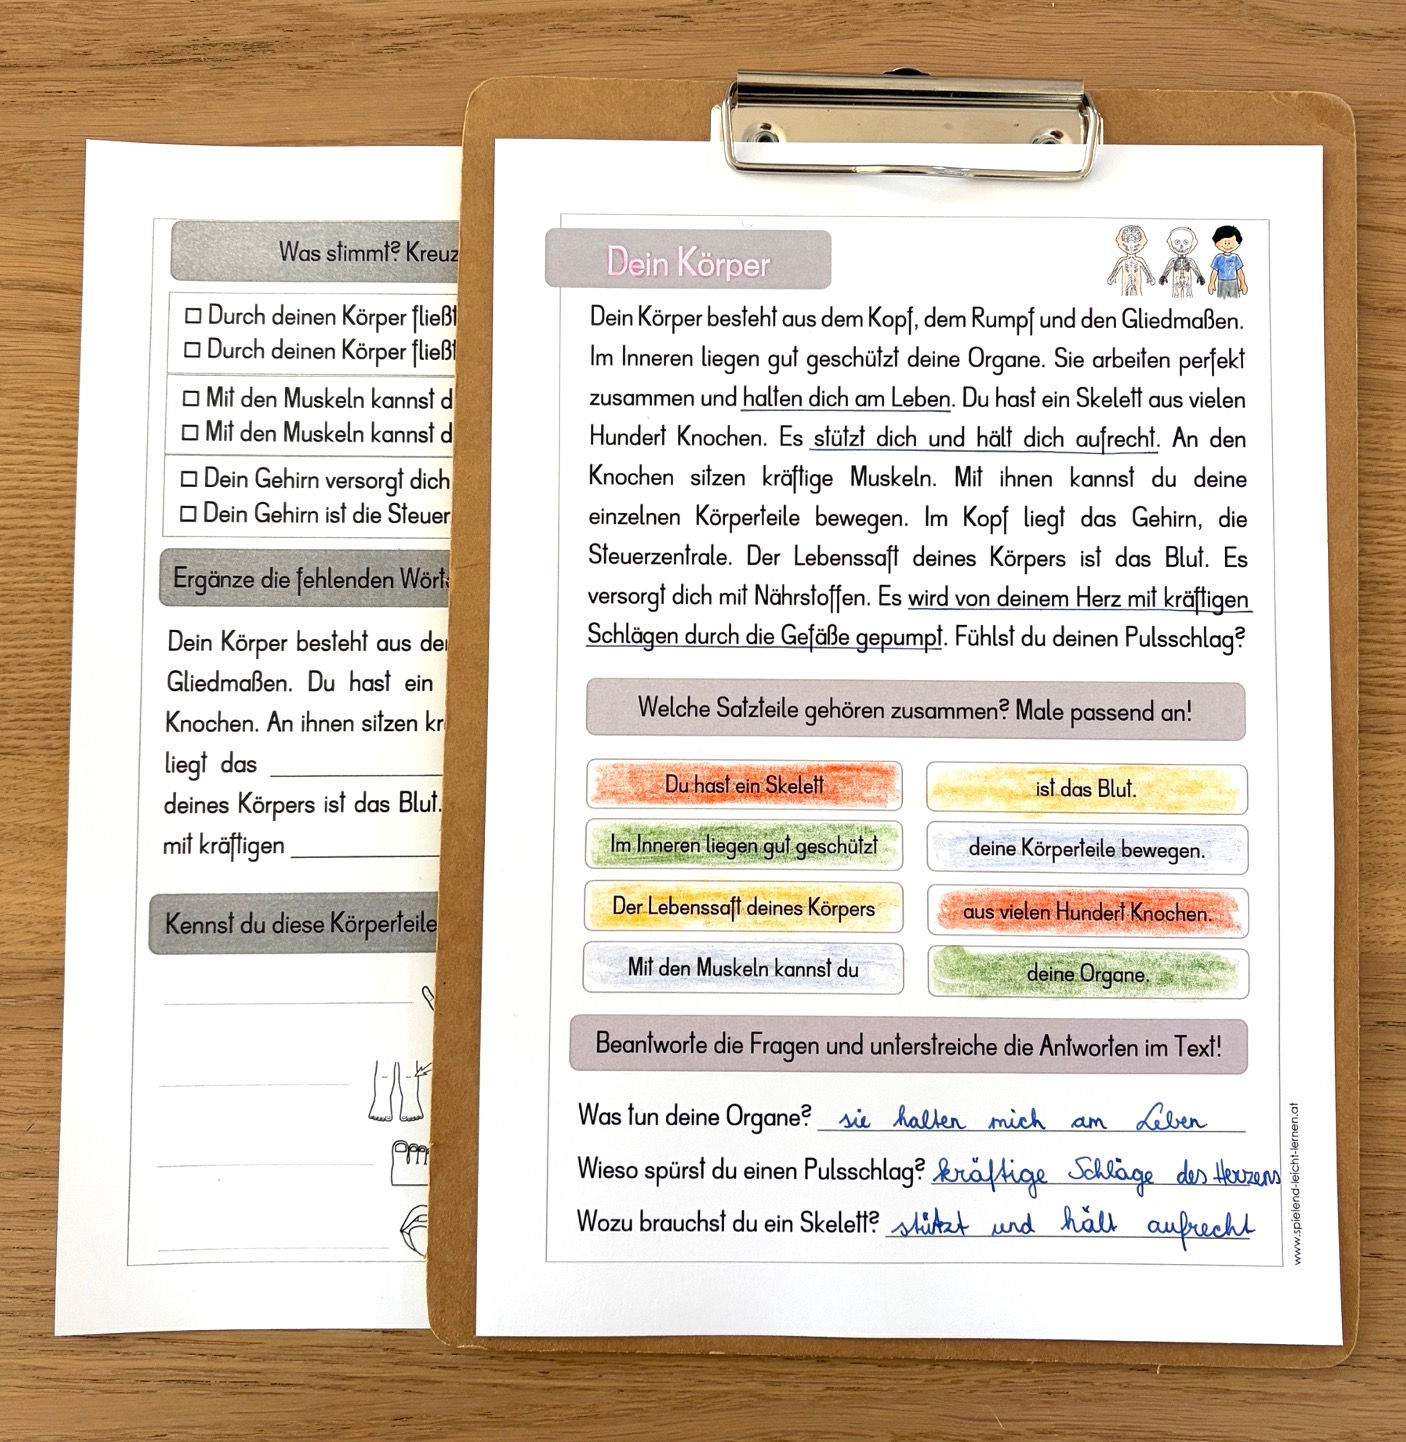 Was stimmt? Kreuz
Durch deinen Körper fließt
Durch deinen Körper fließt
Mit den Muskeln kannst d
Mit den Muskeln kannst d
Dein Gehirn versorgt dich
Dein Gehirn ist die Steuer
Ergänze die fehlenden Wört
Dein Körper besteht aus de
Gliedmaßen. Du hast ein
Knochen. An ihnen sitzen kr
liegt das
deines Körpers ist das Blut.
mit kräftigen
Kennst du diese Körperteile
Dein Körper
Dein Körper besteht aus dem Kopf, dem Rumpf und den Gliedmaßen.
Im Inneren liegen gut geschützt deine Organe. Sie arbeiten perfekt
zusammen und halten dich am Leben. Du hast ein Skelett aus vielen
Hundert Knochen. Es stützt dich und hält dich aufrecht. An den
Knochen sitzen kräftige Muskeln. Mit ihnen kannst du deine
einzelnen Körperteile bewegen. Im Kopf liegt das Gehirn, die
Steuerzentrale. Der Lebenssaft deines Körpers ist das Blut. Es
versorgt dich mit Nährstoffen. Es wird von deinem Herz mit kräftigen
Schlägen durch die Gefäße gepumpt. Fühlst du deinen Pulsschlag?
Welche Satzteile gehören zusammen? Male passend an!
Du hast ein Skelett
ist das Blut.
Im Inneren liegen gut geschützt
deine Körperteile bewegen.
Der Lebenssaft deines Körpers
aus vielen Hundert Knochen.
Mit den Muskeln kannst du
deine Organe.
Beantworte die Fragen und unterstreiche die Antworten im Text!
Was tun deine Organe? sie halten mich am Leben
Wieso spürst du einen Pulsschlag? kräftige Schläge des Herzens
Wozu brauchst du ein Skelett? stützt und hält aufrecht
www.spielend-leicht-lernen.at